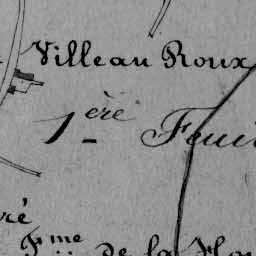 Villeau Roux
1ère Feui
ré
Fme de la